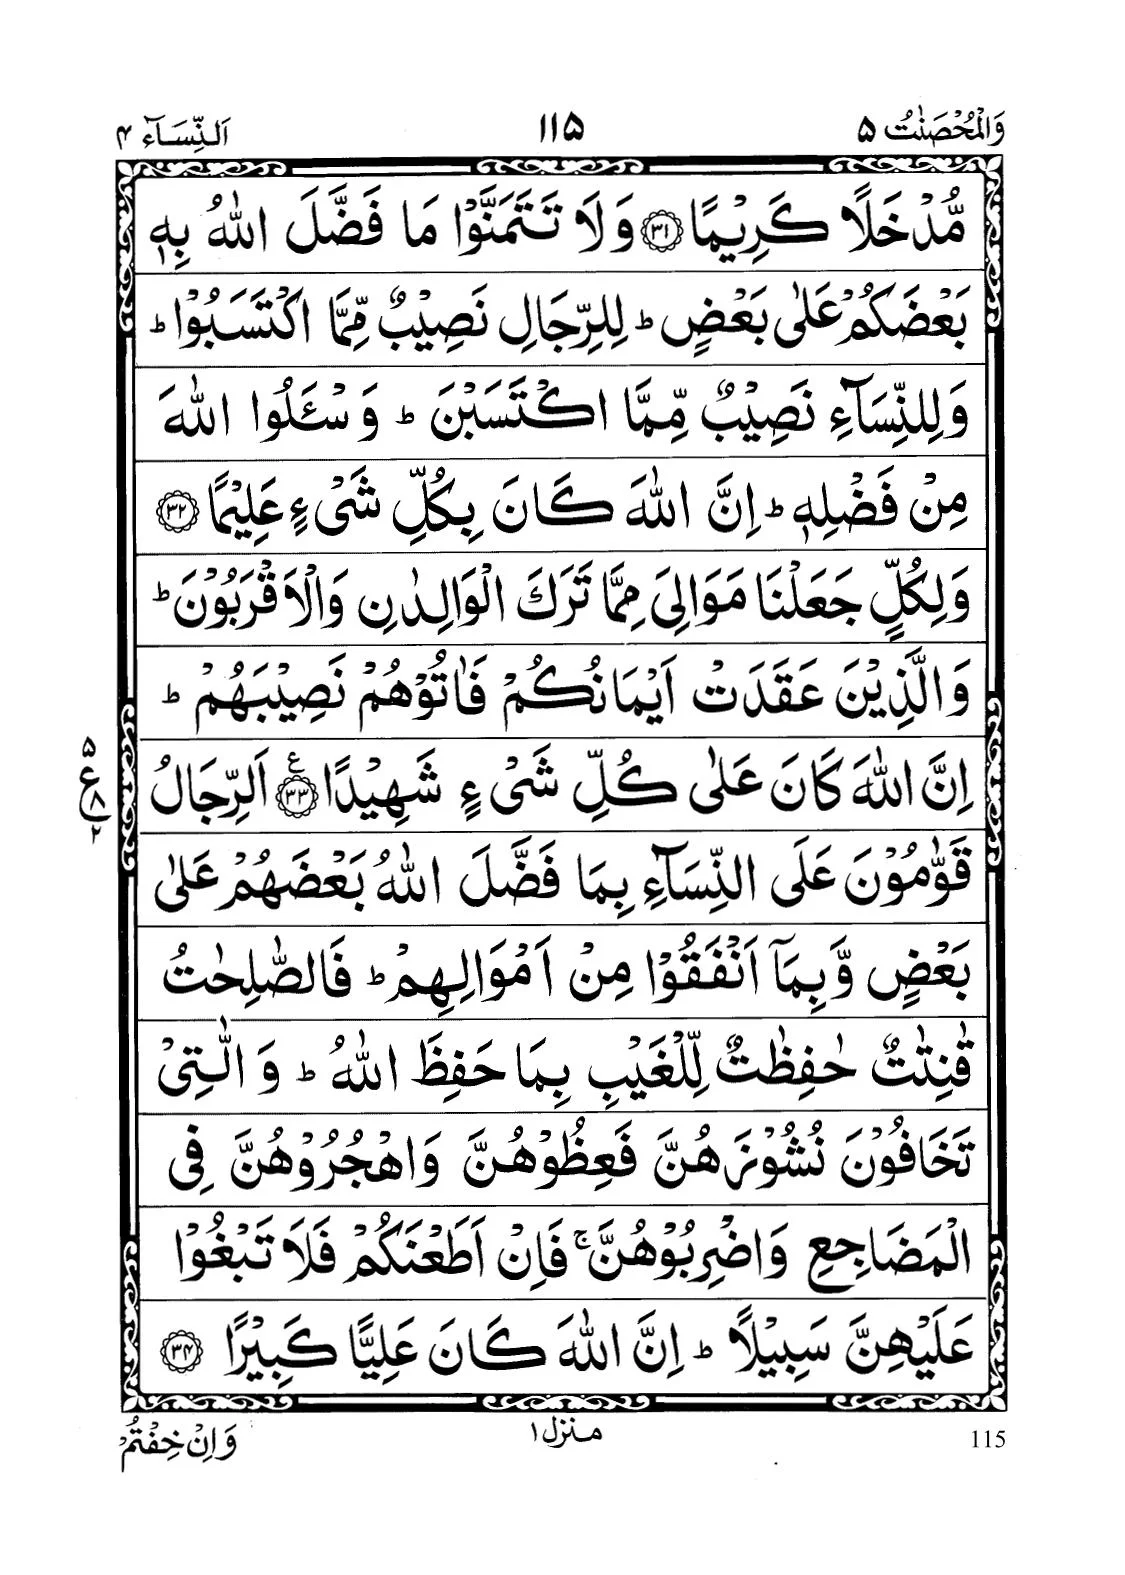 وَالْمُحْصَنٰتُ ۵
۱۱۵
اَلنِّسَآء ۴
مُّدْخَلًا كَرِيْمًا ۳۱ وَلَا تَتَمَنَّوْا مَا فَضَّلَ اللّٰهُ بِهٖ
بَعْضَكُمْ عَلٰى بَعْضٍ ؕ لِلرِّجَالِ نَصِيْبٌ مِّمَّا اكْتَسَبُوْا ؕ
وَلِلنِّسَآءِ نَصِيْبٌ مِّمَّا اكْتَسَبْنَ ؕ وَسْـَٔلُوا اللّٰهَ
مِنْ فَضْلِهٖ ؕ اِنَّ اللّٰهَ كَانَ بِكُلِّ شَىْءٍ عَلِيْمًا ۳۲
وَلِكُلٍّ جَعَلْنَا مَوَالِىَ مِمَّا تَرَكَ الْوَالِدٰنِ وَالْاَقْرَبُوْنَ ؕ
وَالَّذِيْنَ عَقَدَتْ اَيْمَانُكُمْ فَاٰتُوْهُمْ نَصِيْبَهُمْ ؕ
اِنَّ اللّٰهَ كَانَ عَلٰى كُلِّ شَىْءٍ شَهِيْدًا ۳۳ ع اَلرِّجَالُ
۵
ع
۸
۲
قَوّٰمُوْنَ عَلَى النِّسَآءِ بِمَا فَضَّلَ اللّٰهُ بَعْضَهُمْ عَلٰى
بَعْضٍ وَّبِمَاۤ اَنْفَقُوْا مِنْ اَمْوَالِهِمْ ؕ فَالصّٰلِحٰتُ
قٰنِتٰتٌ حٰفِظٰتٌ لِّلْغَيْبِ بِمَا حَفِظَ اللّٰهُ ؕ وَالّٰتِىْ
تَخَافُوْنَ نُشُوْزَهُنَّ فَعِظُوْهُنَّ وَاهْجُرُوْهُنَّ فِى
الْمَضَاجِعِ وَاضْرِبُوْهُنَّ ۚ فَاِنْ اَطَعْنَكُمْ فَلَا تَبْغُوْا
عَلَيْهِنَّ سَبِيْلًا ؕ اِنَّ اللّٰهَ كَانَ عَلِيًّا كَبِيْرًا ۳۴
115
منزل ۱
وَاِنْ خِفْتُمْ